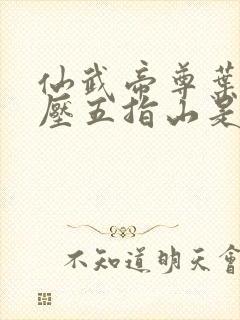 仙武帝尊葉
壓五指山是
不知道明天會